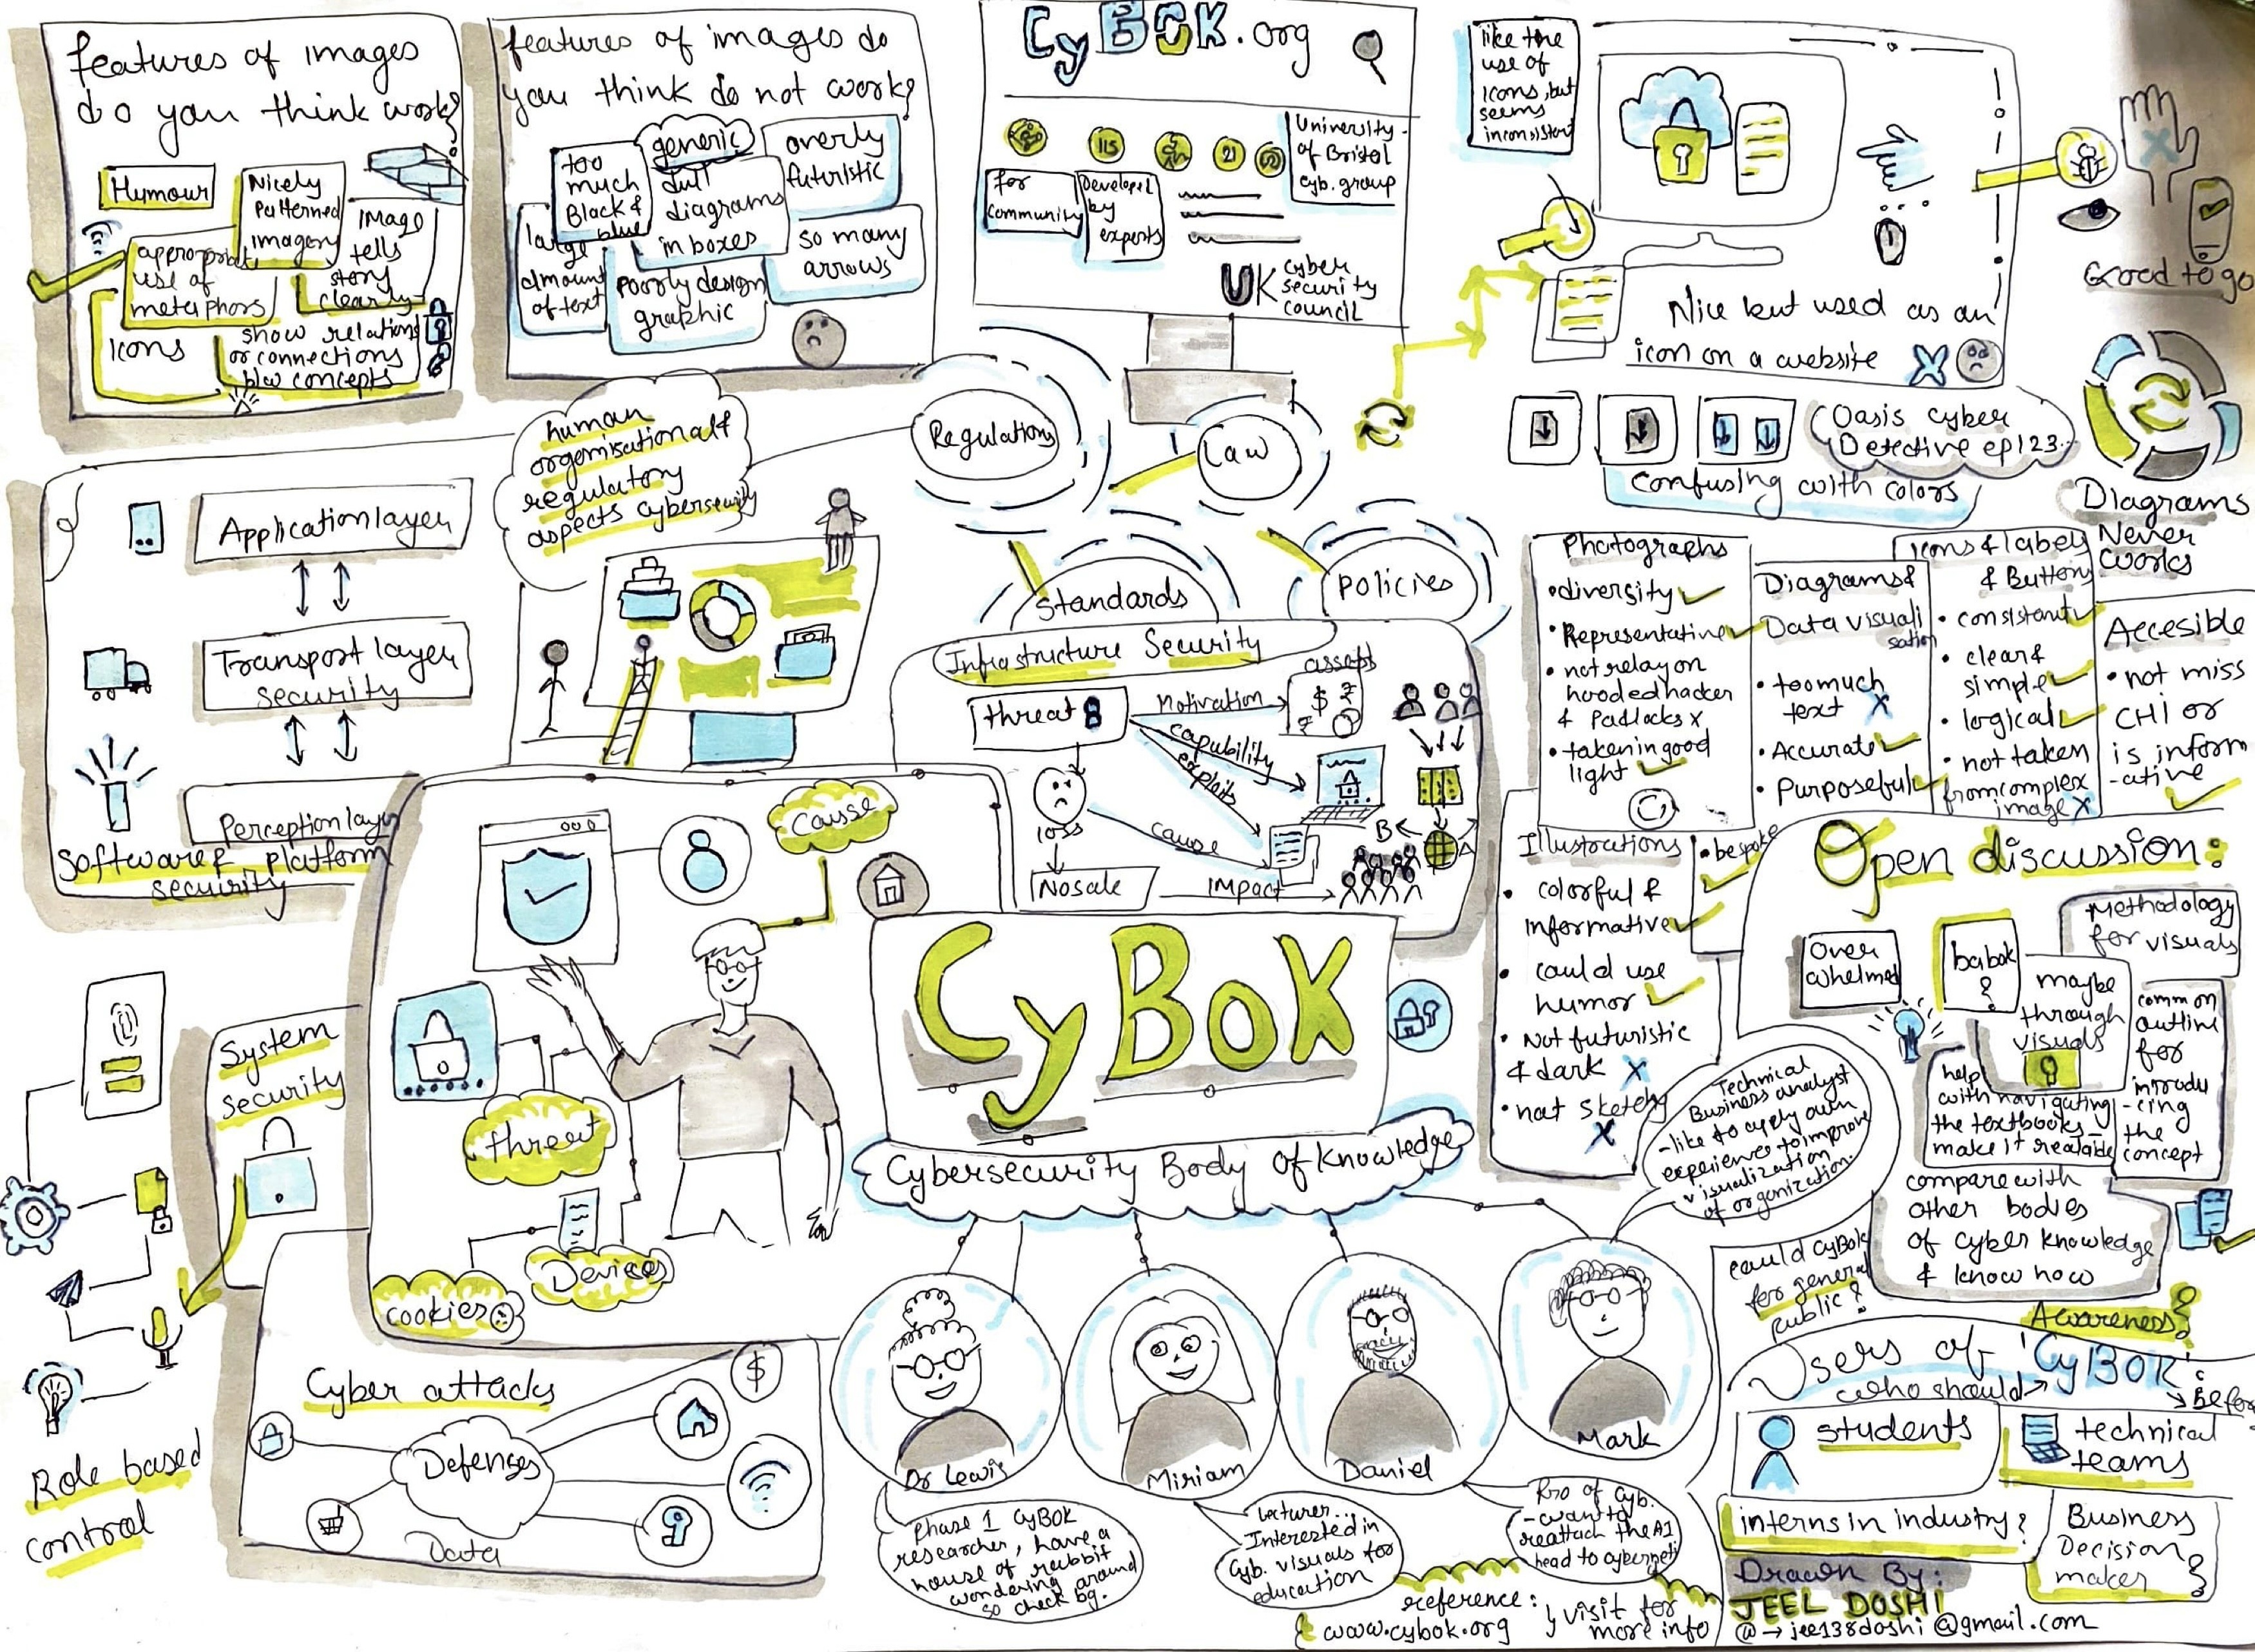 features of images
do you think work?
Humour
Nicely
Patterned
imagery
IMage
tells
story
clearly
appropriate
use of
metaphors
Icons
show relations
or connections
b/w concepts
features of images do
you think do not work?
too
much
Black &
blue
generic
dull
diagrams
in boxes
overly
futuristic
large
amount
of text
poorly design
graphic
so many
arrows
CyBOK.org
115
21
for
community
Developed
by
experts
University
of Bristol
Cyb. group
UK cyber
security
council
like the
use of
Icons, but
seems
inconsistent
Nice but used as an
icon on a website
Good to go
Oasis Cyber
Detective ep123..
confusing with colors
Diagrams
Never
works
human
organisational &
regulatory
aspects cybersecurity
Regulations
Law
Standards
Policies
Application layer
Transport layer
security
Perception layer
Software & platform
security
Infrastructure Security
threat
Motivation
assets
capability
exploits
loss
cause
B
A
No sale
IMpact
Photographs
• diversity
• Representative
• not relay on
hooded hacker
& Padlocks x
• taken in good
light
Diagrams &
Data visuali
sation
• too much
text
• Accurate
• Purposeful
Icons & labels
& Buttons
• consistant
• clear &
simple
• logical
• not taken
from complex
image
Accesible
• not miss
CHI or
is inform
-ative
Illustrations
• bespoke
• colorful &
informative
• could use
humor
• Not futuristic
& dark
• not sketchy
Open discussion:
Over
whelmed
babok
?
Methodology
for visuals
maybe
through
visuals
common
outline
for
introdu
-cing
the
concept
help
with navigating
the textbooks-
make it readable
compare with
other bodies
of cyber knowledge
& know how
Causse
threat
Devices
Cookies
CyBoK
Cybersecurity Body of Knowledge
System
security
Role based
control
Cyber attacks
$
Defenses
Data
Technical
Business analyst
-like to apply own
experience to improve
visualization
of organization.
Dr Lewis
Miriam
Daniel
Mark
Phase 1 CyBOK
researcher, have a
house of rabbit
wondering around
so check bg.
Lecturer...
Interested in
Cyb. visuals for
education
Pro of Cyb.
-want to
reattach the AI
head to cyberneti
could CyBok
for general
public?
Awareness?
Users of 'CyBOK'
who should
Before
students
technical
teams
interns in industry?
Business
Decision
maker ?
reference:
www.cybok.org
visit for
more info
Drawn By:
JEEL DOSHI
@ → jeel38doshi@gmail.com